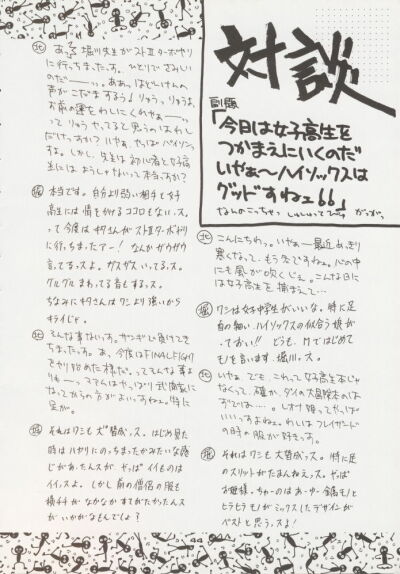 対談
副題
「今日は女子高生を
つかまえにいくのだ
いやぁ〜ハイソックスは
グッドすねェ66」
なんのこっちゃっ
北 こんにちわ。いやぁー最近めっきり
寒くなって、もう冬ですねェ。心の中
にも風が吹くしェ。こんな日に
は女子高生を捕まえて…
堀 ワシは女子中学生がいいな。特に足
首の細い、ハイソックスの似合う娘が
どうも、Mではじめて
モノを言います、堀川っス。
北 いやぁ、でも、これって女子高生本じゃ
なくって、確か、ダイの大冒険本のは
ずでは……。レオナ姫ってやっぱ
いいっすよねェ。わしはフレイザード
の時の服が好きっす。
堀 それはワシも大賛成っス。特に足
のスリットがたまんねェっス。やっぱ
お姫様っちゅーのは
ヒラヒラモノがミックスしたデザインが
ベストと思うっスよ!
北 あっ、堀川先生がストⅡターボやり
に行っちまったっす。ひとりでさみしい
のだー…。ああっほどしんの
声がこだまするぅ!りゅうっりゅうよ、
お前の運をわしにくれやぁー…
ってりゅうやってると思うのはわし
だけっすか?いやぁ、やっぱバイソンっ
すよ。しかし、先生は初心者と女子高
生にはようしゃないって本当っすか?
堀 本当です。自分より弱い相手と女子
高生には情をかけるココロもないっス。
って今度は北さんがストⅡターボやり
に行っちまったアー!なんかガウガウ
言ってるっスよ。ガスガスいってるっス。
グルグルまわってる音もするっス。
ちなみに北さんはワシより強いから
キライじゃ。
北 そんな事ないっす。サンザン負けてき
ちまったっす。あ、今度はFINALFIGHT
をやり始めた様だ。ってそんな事よ
りも…っマァムはやっぱり武闘家に
なってからの方がよいっすねェ。特に
足が。
堀 それはワシも大賛成っス。はじめ見た
時はハヤリにのっちまったかみたいな感
じがあったんスが、やっぱイイものは
イイっスよ。しかし前の僧侶の服も
横チチがなかなかすてがたかったんス
がいかがなもんでしょ?